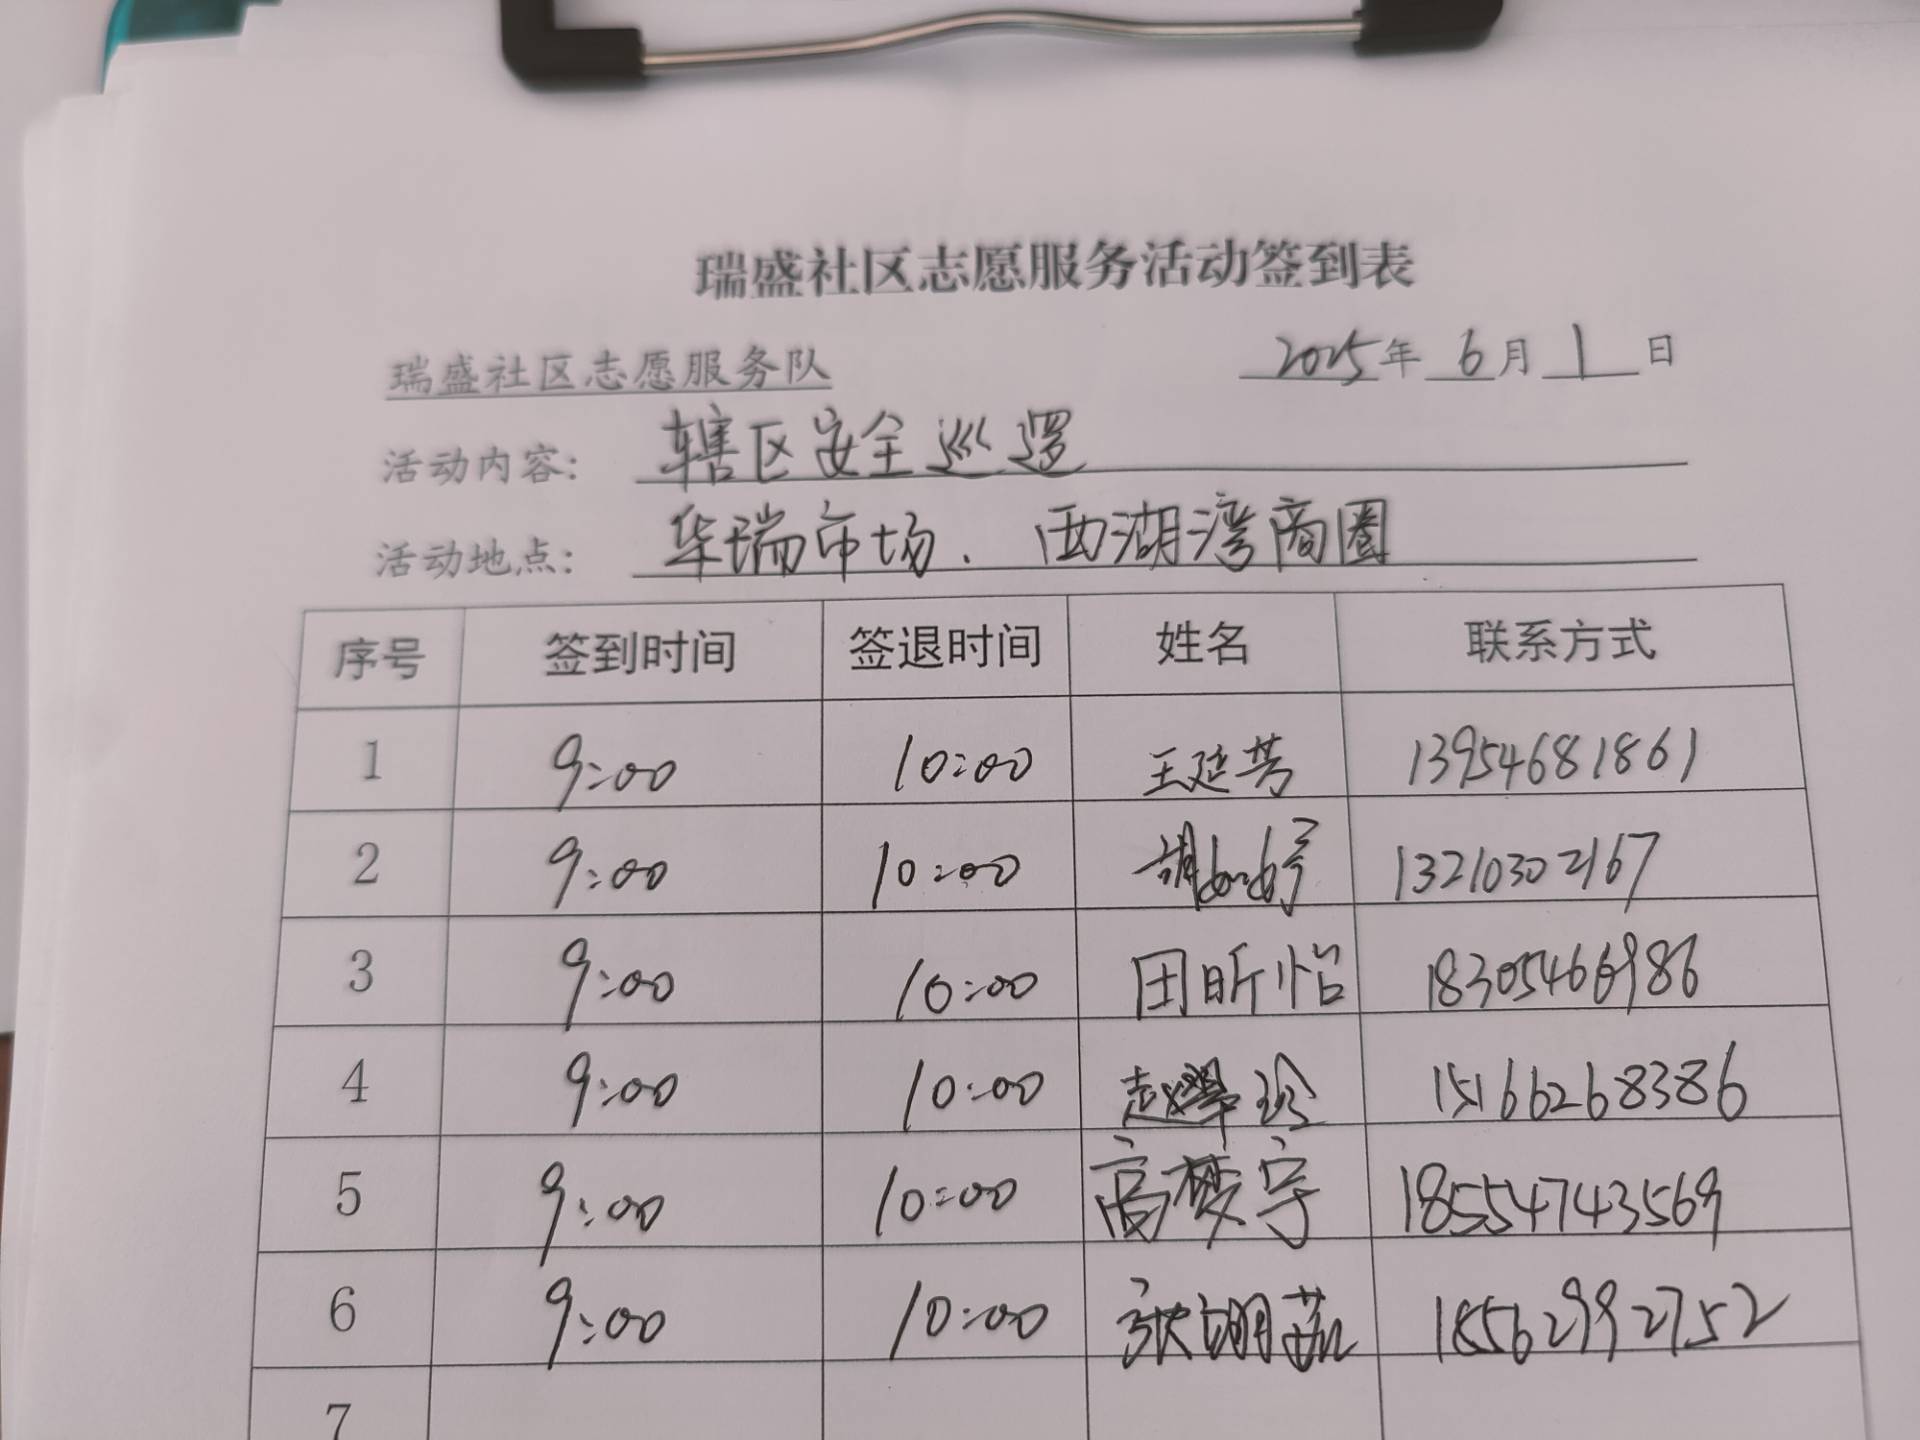 瑞盛社区志愿服务活动签到表
瑞盛社区志愿服务队 2025年 6月 1 日
活动内容: 辖区安全巡逻
活动地点: 华瑞市场、西湖湾商圈
序号 签到时间 签退时间 姓名 联系方式
1 9:00 10:00 王延芳 13954681861
2 9:00 10:00 13210302167
3 9:00 10:00 田昕怡 18305466986
4 9:00 10:00 赵翠玲 15166268386
5 9:00 10:00 高梦宇 18554743569
6 9:00 10:00 15562992752
7